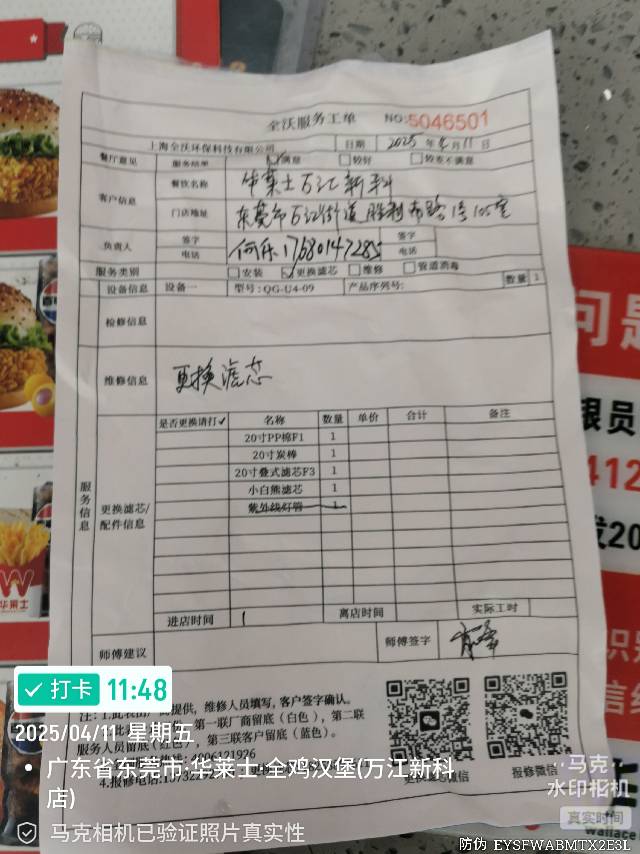 全沃服务工单 NO:5046501
上海全沃环保科技有限公司 日期 2025年4月11日
餐厅意见 服务结果 满意 较好 较差不满意
客户信息 餐饮名称 华莱士万江新科
门店地址 东莞市万江街道胜利南路1号105室
负责人 签字 电话 何乐 17680147285 签字 电话
服务类别 安装 更换滤芯 维修 管道消毒
设备信息 设备一 型号:QG-U4-09 产品序列号: 数量 1
检修信息
维修信息 更换滤芯
服务信息
更换滤芯/配件信息
是否更换请打✓ 名称 数量 单价 合计 备注
20寸PP棉F1 1
20寸炭棒 1
20寸叠式滤芯F3 1
小白熊滤芯 1
紫外线灯管 1
进店时间 离店时间 实际工时
师傅建议 师傅签字
提供,维修人员填写,客户签字确认。
第一联厂商留底(白色),第二联
服务人员留底(红色),第三联客户留底(蓝色)。
4006121926
4.报修电话
报修微信
打卡 11:48
2025/04/11 星期五
广东省东莞市·华莱士·全鸡汉堡(万江新科店)
马克相机已验证照片真实性
马克
水印相机
真实时间
防伪 EYSFWABMTX2E3L
华莱士
Wallace
问是
银员
412
发20